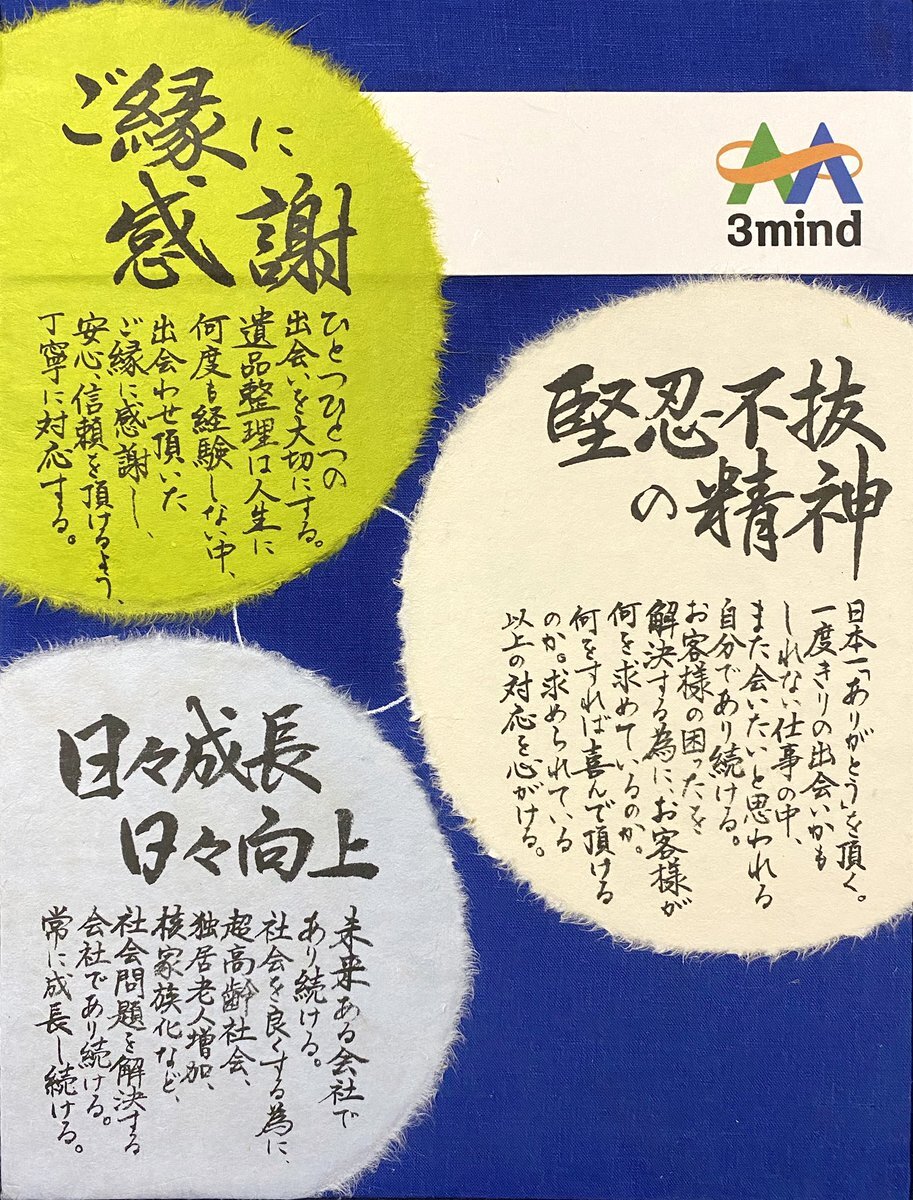 ご縁に
感謝
ひとつひとつの
出会いを大切にする。
遺品整理は人生に
何度も経験しない中、
出会わせ頂いた
ご縁に感謝し、
安心、信頼を頂けるよう、
丁寧に対応する。
3mind
堅忍不抜
の精神
日本一「ありがとう」を頂く。
一度きりの出会いかも
しれない仕事の中、
また会いたいと思われる
自分であり続ける。
お客様の困ったを
解決する為に、お客様が
何を求めているのか。
何をすれば喜んで頂ける
のか。求められている
以上の対応を心がける。
日々成長
日々向上
未来ある会社で
あり続ける。
社会を良くする為に、
超高齢社会、
独居老人増加、
核家族化など、
社会問題を解決する
会社であり続ける。
常に成長し続ける。